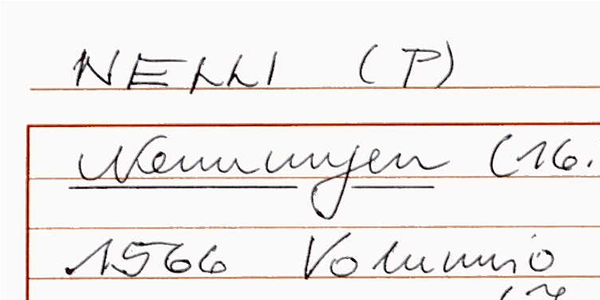 NELLI (P)
Nennungen (16.
1566 Volumnio
(?